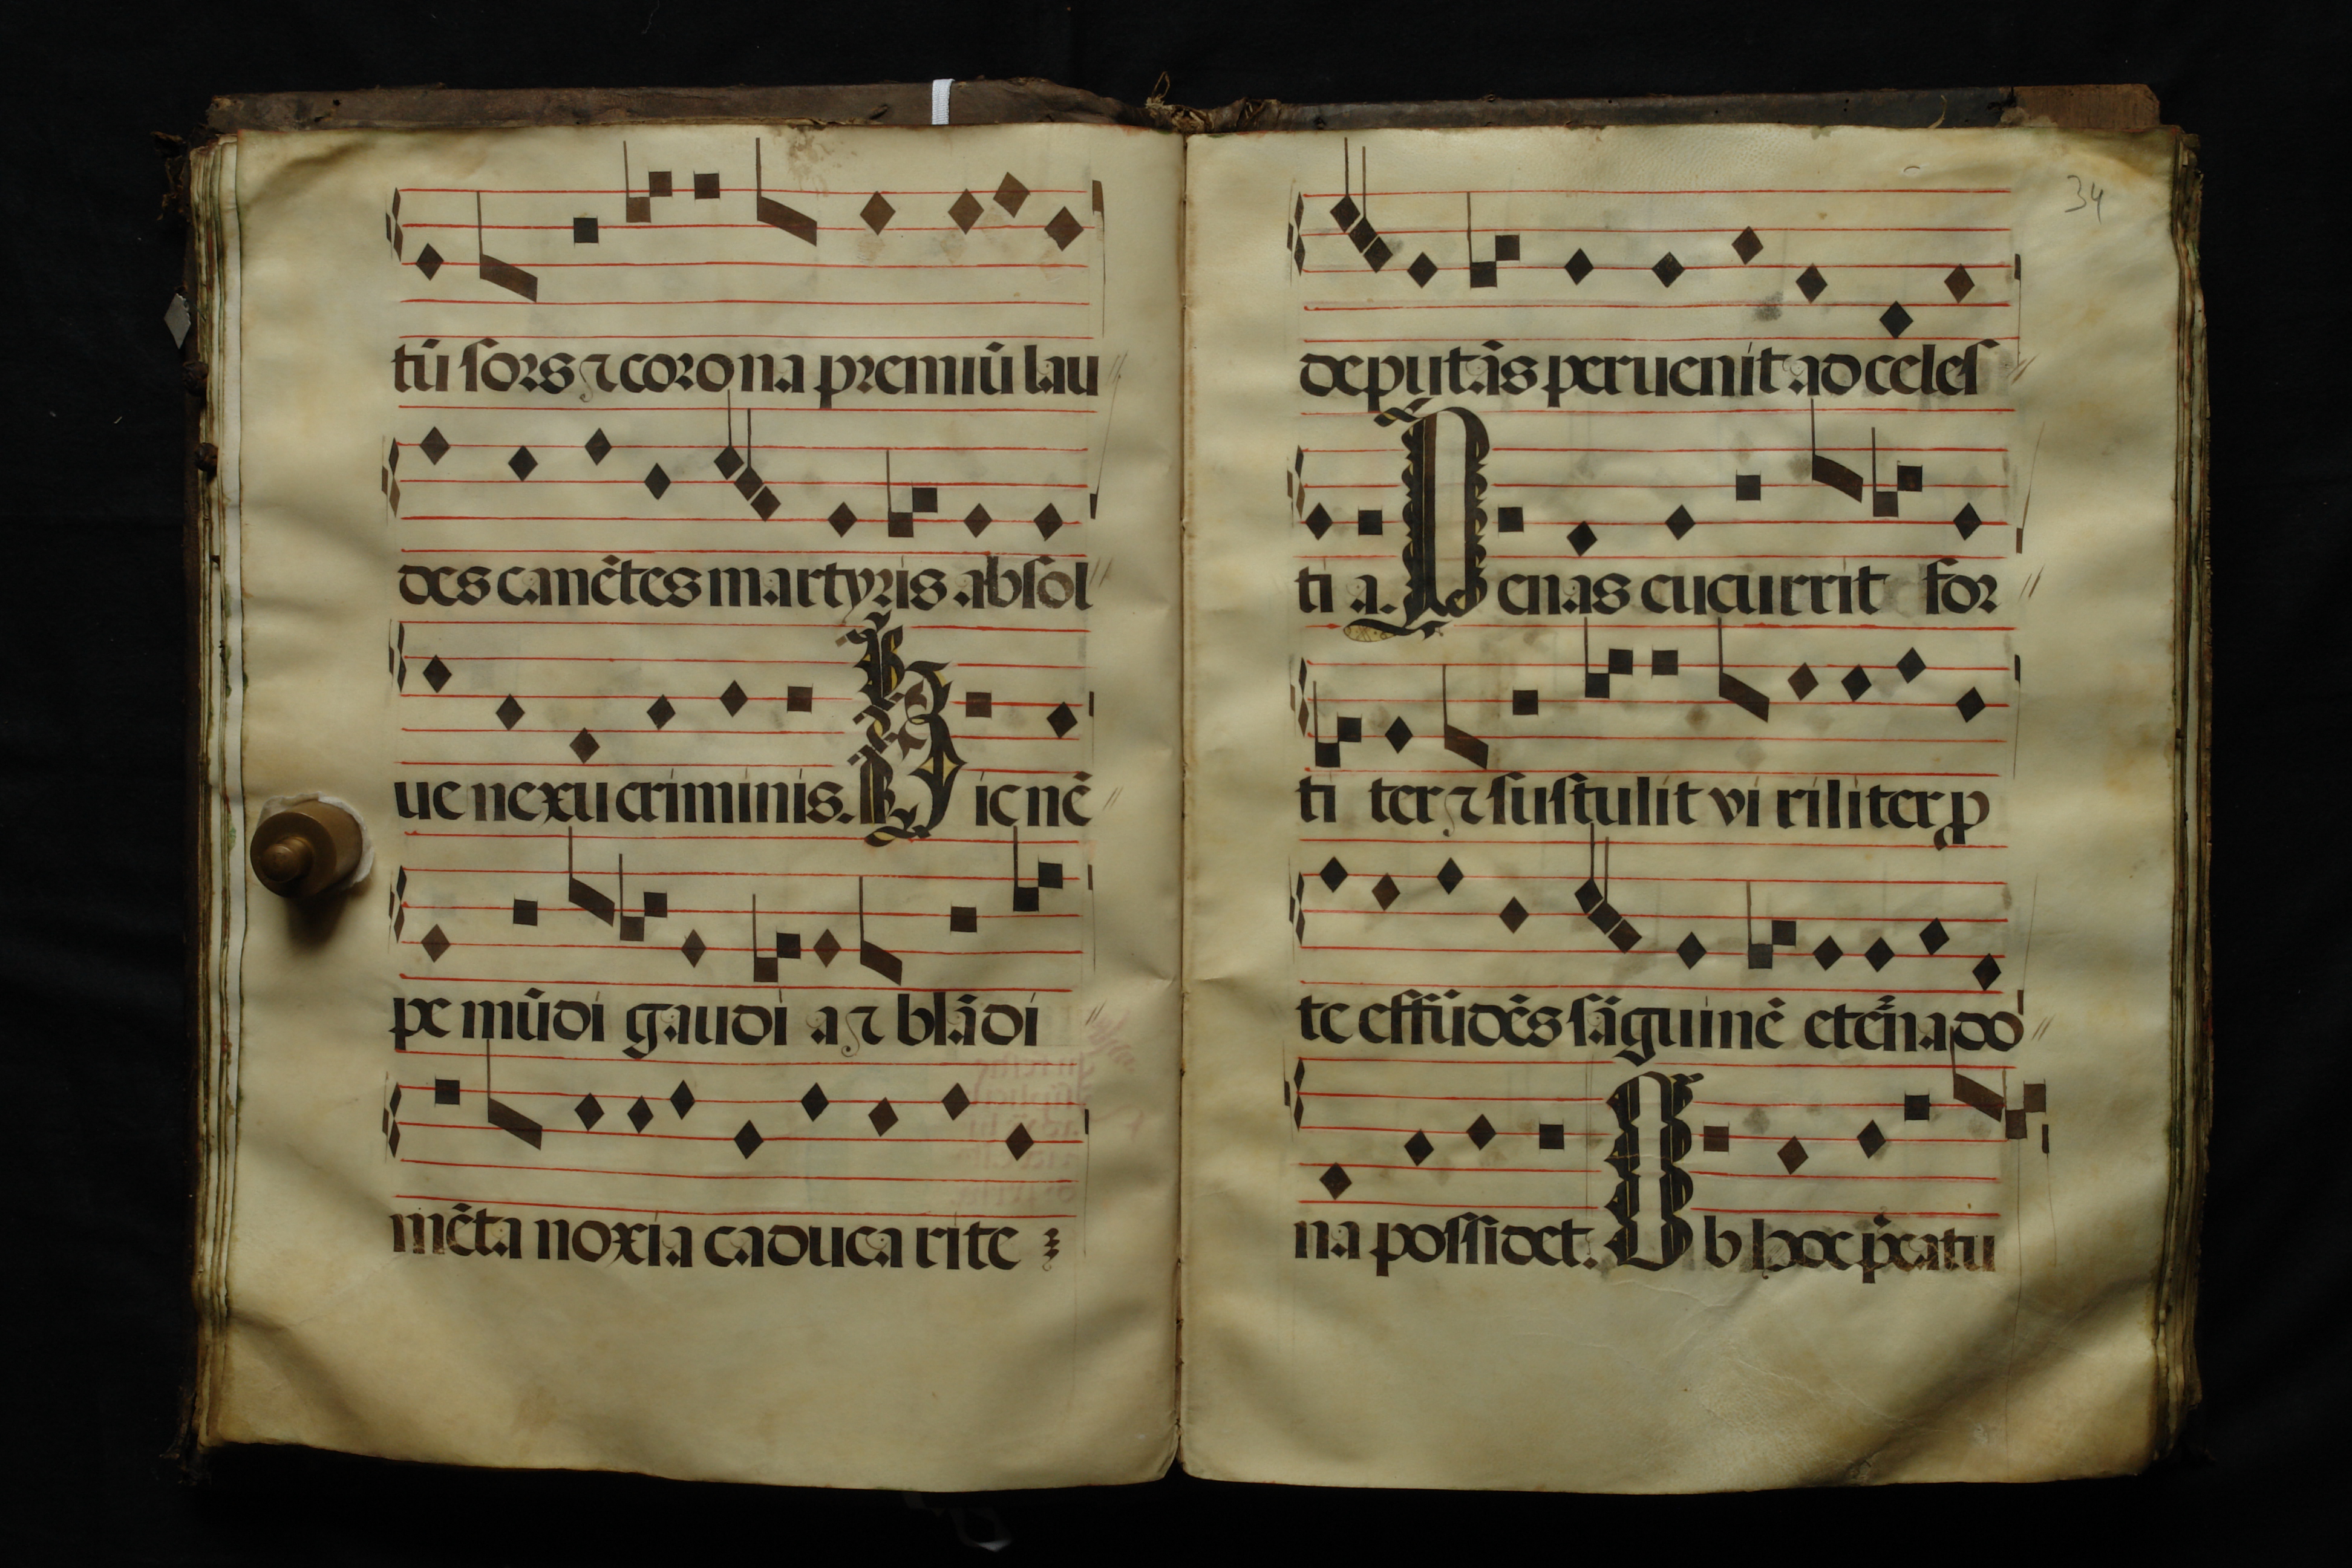 tū sors ⁊ corona premiū lau
des canētes martyris absol
ue nexu criminis. Hic nē
pe mūdi gaudia ⁊ blādi
mēta noxia caduca rite
34
deputās peruenit ad celes
tia. Penas cucurrit for
titer ⁊ sustulit viriliter ꝓ
te effūdēs sāguinē etēna do
na possidet. Ob hoc p̄catu